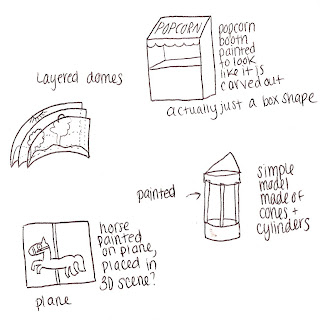 POPCORN
popcorn
booth
painted
to look
like it is
carved out
actually just a box shape
Layered domes
painted →
simple
model
made of
cones +
cylinders
horse
painted
on plane,
placed in
3D scene?
plane